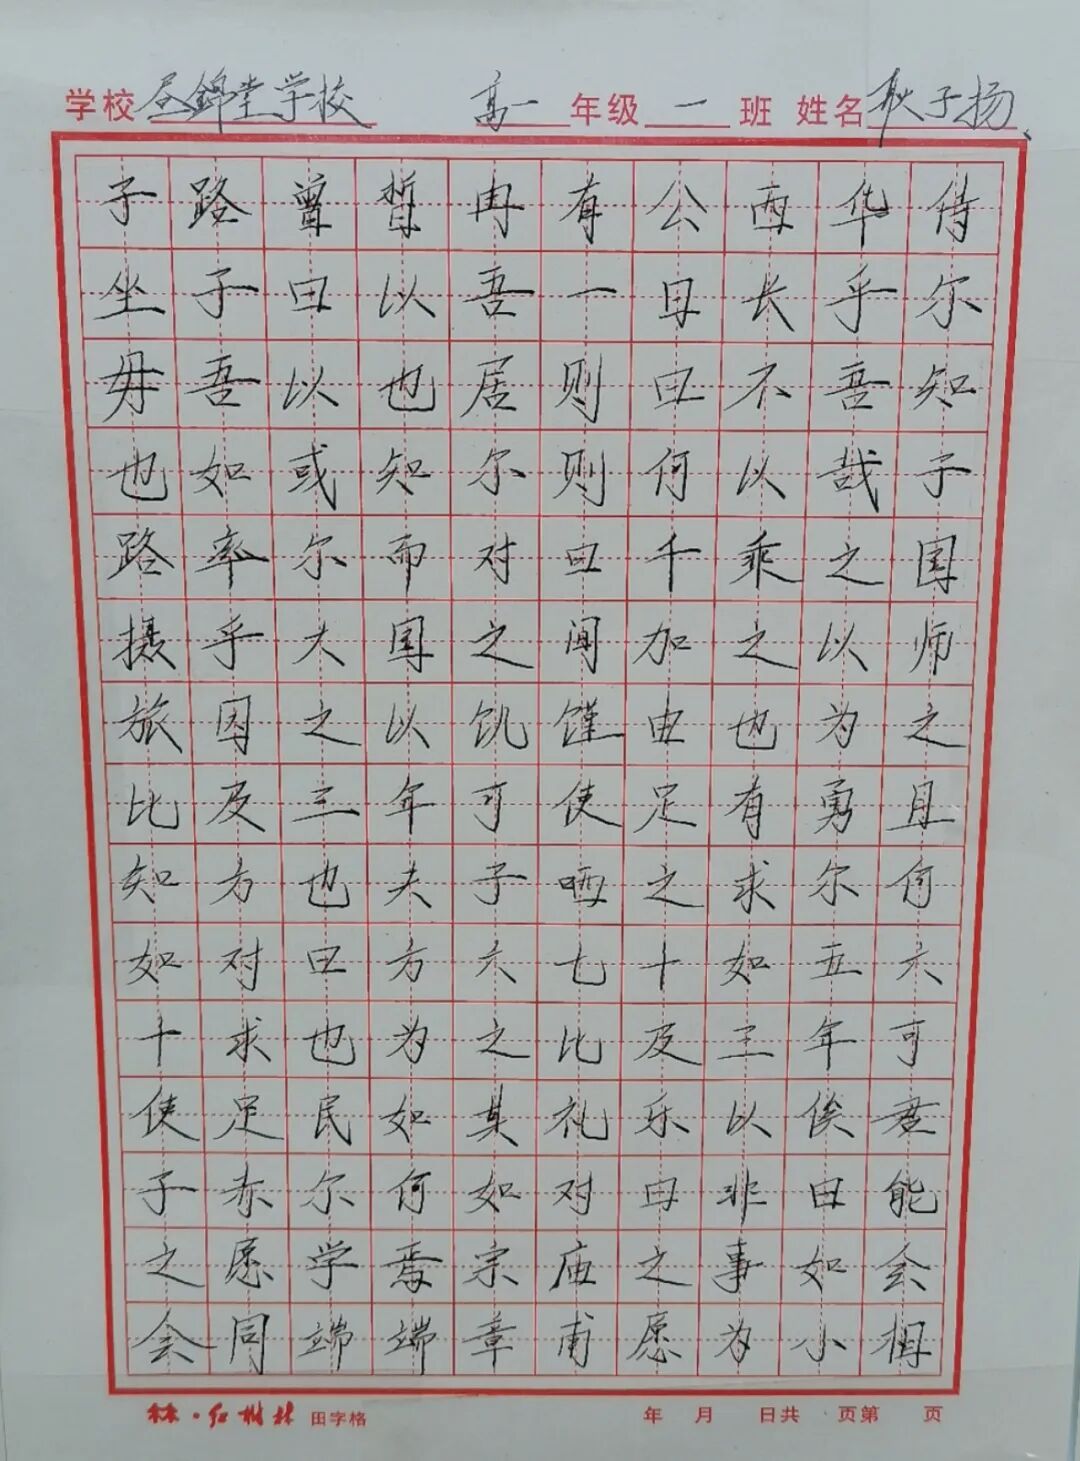 学校 昼錦堂学校 高一 年级 一 班 姓名 耿子扬
子路曾晳冉有公西华侍
坐子曰以吾一日长乎尔
毋吾以也居则曰不吾知
也如或知尔则何以哉子
路率尔而对曰千乘之国
摄乎大国之间加之以师
旅因之以饥馑由也为之
比及三年可使足有勇且
知方也夫子哂之求尔何
如对曰方六七十如五六
十求也为之比及三年可
使足民如其礼乐以俟君
子赤尔何如对曰非曰能
之愿学焉宗庙之事如会
会同端端章甫愿为小相
林·红树林 田字格 年 月 日共 页第 页